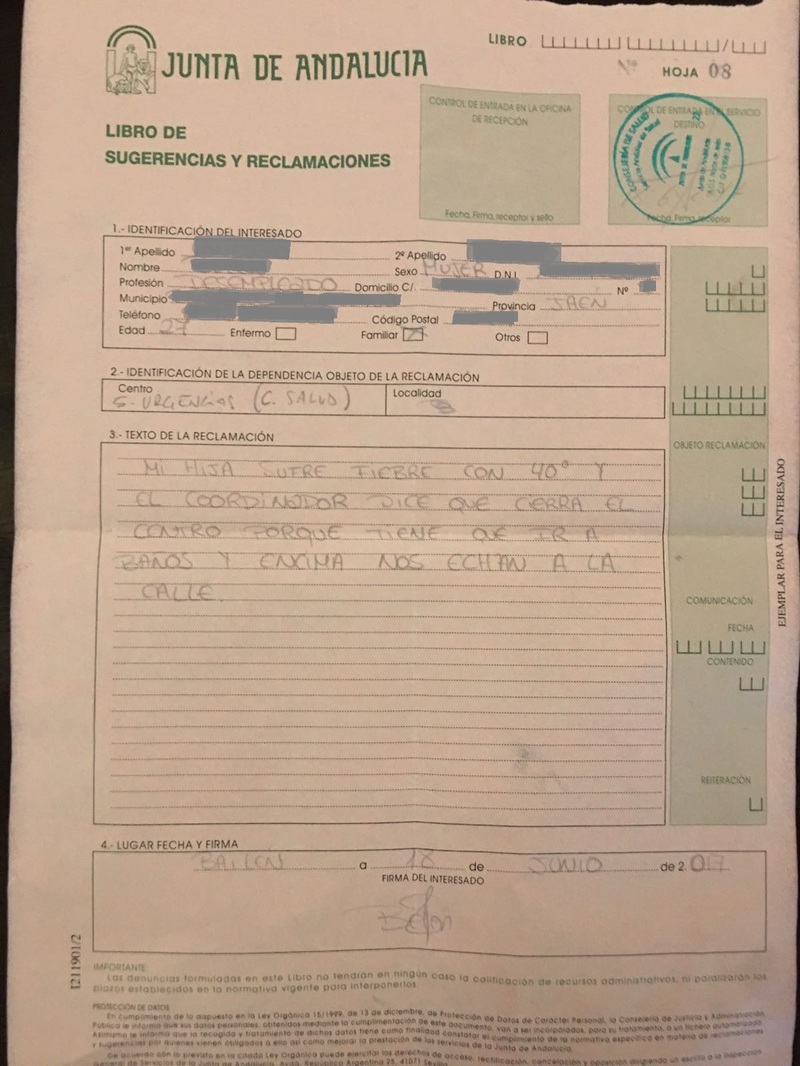 LIBRO
Nº HOJA 08
JUNTA DE ANDALUCIA
LIBRO DE
SUGERENCIAS Y RECLAMACIONES
CONTROL DE ENTRADA EN LA OFICINA
DE RECEPCIÓN
Fecha, Firma, receptor y sello
CONTROL DE ENTRADA EN EL SERVICIO
DESTINO
Fecha, Firma, receptor
CONSEJERIA DE SALUD
1.- IDENTIFICACIÓN DEL INTERESADO
1er Apellido 2º Apellido
Nombre Sexo MUJER D.N.I.
Profesión DESEMPLEADO Domicilio C/. Nº
Municipio Provincia JAÉN
Teléfono Código Postal
Edad 27 Enfermo Familiar Otros
2.- IDENTIFICACIÓN DE LA DEPENDENCIA OBJETO DE LA RECLAMACIÓN
Centro Localidad
S. URGENCIAS (C. SALUD)
3.- TEXTO DE LA RECLAMACIÓN
MI HIJA SUFRE FIEBRE CON 40º Y
EL COORDINADOR DICE QUE CIERRA EL
CENTRO PORQUE TIENE QUE IR A
BAÑOS Y ENCIMA NOS ECHAN A LA
CALLE.
OBJETO RECLAMACIÓN
COMUNICACIÓN
FECHA
CONTENIDO
REITERACIÓN
EJEMPLAR PARA EL INTERESADO
4.- LUGAR FECHA Y FIRMA
BAILEN a 18 de JUNIO de 2.017
FIRMA DEL INTERESADO
I211901/2
IMPORTANTE:
Las denuncias formuladas en este Libro no tendrán en ningún caso la calificación de recursos administrativos, ni paralizarán los
plazos establecidos en la normativa vigente para interponerlos.
PROTECCIÓN DE DATOS
En cumplimiento de lo dispuesto en la Ley Orgánica 15/1999, de 13 de diciembre, de Protección de Datos de Carácter Personal, la Consejería de Justicia y Administración
Pública le informa que sus datos personales, obtenidos mediante la cumplimentación de este documento, van a ser incorporados, para su tratamiento, a un fichero automatizado.
Asimismo le informa que la recogida y tratamiento de dichos datos tiene como finalidad constatar el cumplimiento de la normativa específica en materia de reclamaciones
y sugerencias por quienes vienen obligados a ello así como mejorar la prestación de los servicios de la Junta de Andalucía.
De acuerdo con lo previsto en la citada Ley Orgánica puede ejercitar los derechos de acceso, rectificación, cancelación y oposición dirigiendo un escrito a la Inspección
General de Servicios de la Junta de Andalucía, Avda. República Argentina 25, 41071 Sevilla